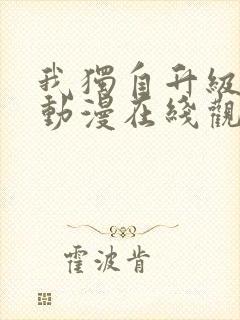 我獨自升級
動漫在綫觀
霍波肯